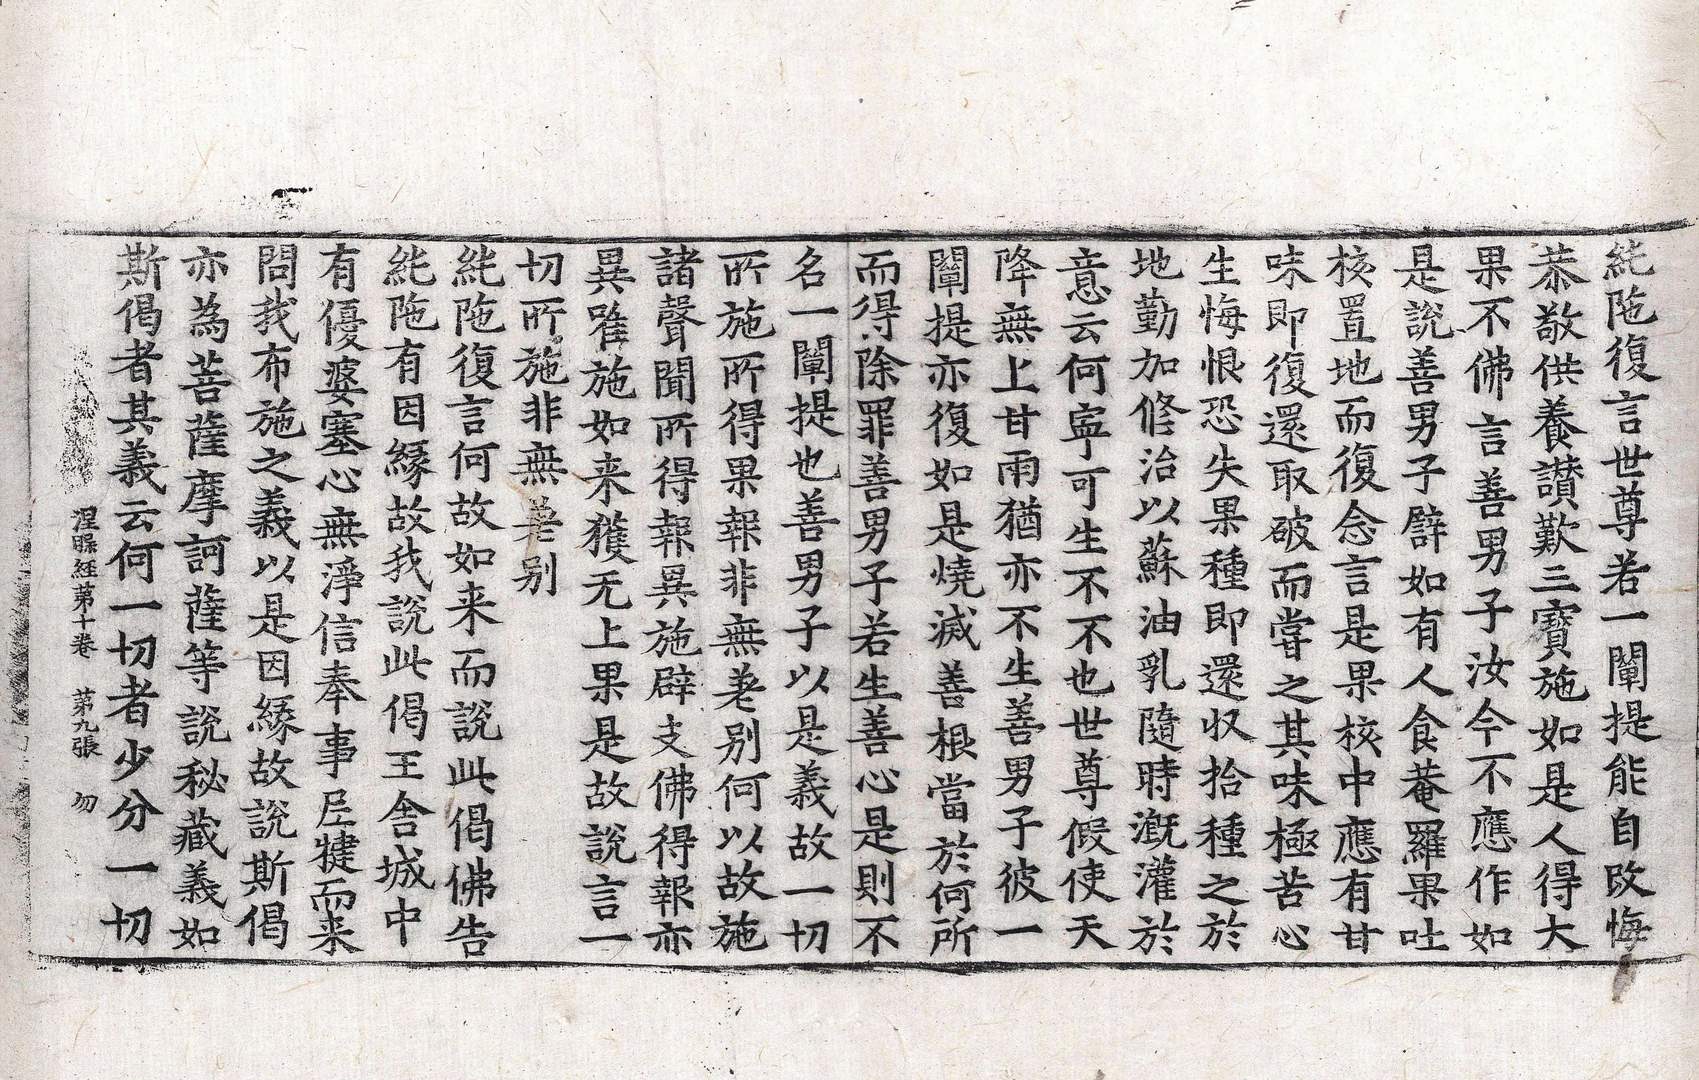 純陁復言世尊若一闡提能自改悔
恭敬供養讃歎三寶施如是人得大
果不佛言善男子汝今不應作如
是說善男子譬如有人食菴羅果吐
核置地而復念言是果核中應有甘
味即復還取破而甞之其味極苦心
生悔恨恐失果種即還収拾種之於
地勤加修治以蘇油乳隨時漑灌於
意云何寧可生不不也世尊假使天
降無上甘雨猶亦不生善男子彼一
闡提亦復如是燒滅善根當於何所
而得除罪善男子若生善心是則不
名一闡提也善男子以是義故一切
所施所得果報非無差別何以故施
諸聲聞所得報異施辟支佛得報亦
異唯施如来獲无上果是故說言一
切所施非無差别
純陁復言何故如来而說此偈佛告
純陁有因縁故我說此偈王舍城中
有優婆塞心無淨信奉事尼犍而来
問我布施之義以是因縁故說斯偈
亦為菩薩摩訶薩等說秘藏義如
斯偈者其義云何一切者少分一切
涅槃経第十卷 第九張 勿